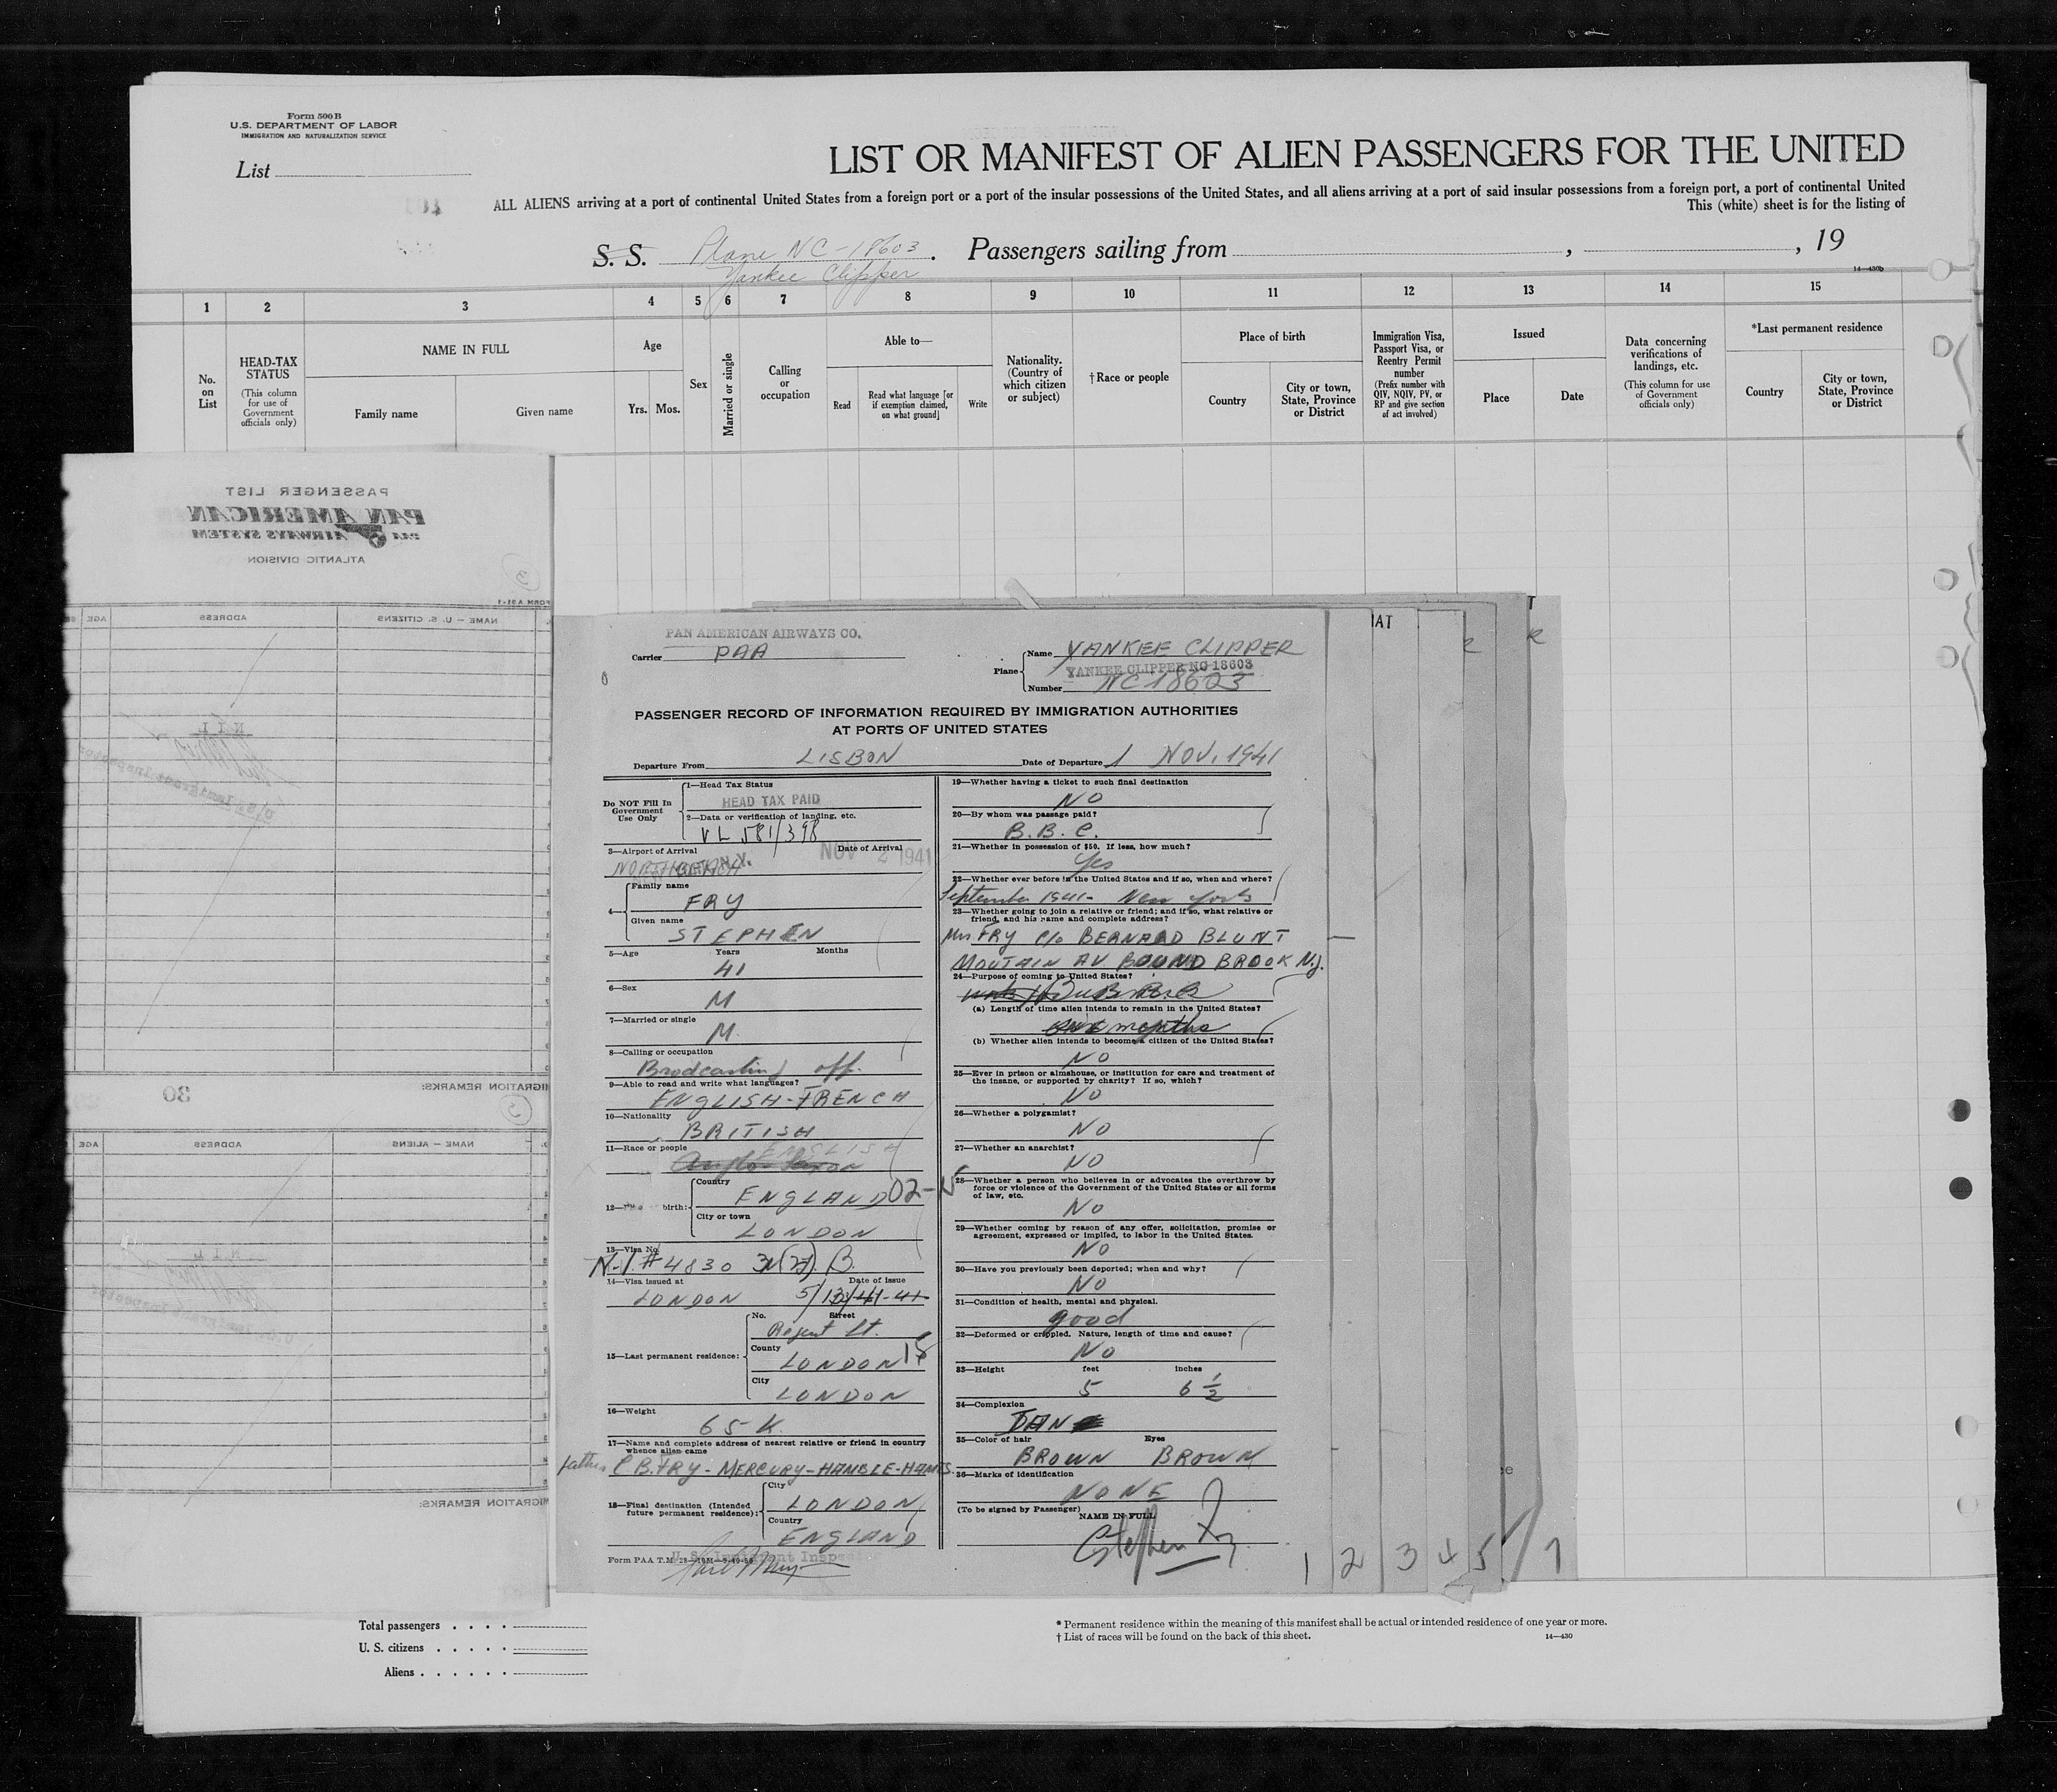 Form 500 B
U.S. DEPARTMENT OF LABOR
IMMIGRATION AND NATURALIZATION SERVICE
List
LIST OR MANIFEST OF ALIEN PASSENGERS FOR THE UNITED
ALL ALIENS arriving at a port of continental United States from a foreign port or a port of the insular possessions of the United States, and all aliens arriving at a port of said insular possessions from a foreign port, a port of continental United
This (white) sheet is for the listing of
S. S. Plane NC-18603. Passengers sailing from , , 19
Yankee Clipper
14—430b
1 2 3 4 5 6 7 8 9 10 11 12 13 14 15
No. on List
HEAD-TAX STATUS
(This column for use of Government officials only)
NAME IN FULL
Family name
Given name
Age
Yrs. Mos.
Sex
Married or single
Calling or occupation
Able to—
Read
Read what language [or if exemption claimed, on what ground]
Write
Nationality. (Country of which citizen or subject)
† Race or people
Place of birth
Country
City or town, State, Province or District
Immigration Visa, Passport Visa, or Reentry Permit number
(Prefix number with QIV, NQIV, PV, or RP and give section of act involved)
Issued
Place
Date
Data concerning verifications of landings, etc.
(This column for use of Government officials only)
*Last permanent residence
Country
City or town, State, Province or District
PASSENGER LIST
PAN AMERICAN
PAA AIRWAYS SYSTEM
ATLANTIC DIVISION
3
FORM A91-1
NAME — U. S. CITIZENS
ADDRESS
AGE
N I L
U. S. Immigrant Inspector
IGRATION REMARKS:
30
3
NAME — ALIENS
ADDRESS
AGE
N I L
IGRATION REMARKS:
PAN AMERICAN AIRWAYS CO.
Carrier PAA
Plane
Name YANKEE CLIPPER
YANKEE CLIPPER NC 18603
Number NC 18603
PASSENGER RECORD OF INFORMATION REQUIRED BY IMMIGRATION AUTHORITIES
AT PORTS OF UNITED STATES
Departure From LISBON Date of Departure 1 NOV. 1941
Do NOT Fill In Government Use Only
1—Head Tax Status
HEAD TAX PAID
2—Data or verification of landing, etc.
VL 581/398
3—Airport of Arrival Date of Arrival
NOV 2 1941
4— Family name
FRY
Given name
STEPHEN
5—Age Years Months
41
6—Sex
M
7—Married or single
M.
8—Calling or occupation
Brodcasting off.
9—Able to read and write what languages?
ENGLISH-FRENCH
10—Nationality
BRITISH
11—Race or people ENGLISH
Anglo Saxon
12— birth:
Country
ENGLAND 02-N
City or town
LONDON
13—Visa No.
N.I. # 4830 3(2) B.
14—Visa issued at Date of issue
LONDON
15—Last permanent residence:
No. Street
Regent St.
County
LONDON 15
City
LONDON
16—Weight
65 K.
17—Name and complete address of nearest relative or friend in country
whence alien came
father C B. FRY - MERCURY - HAMBLE - HANTS.
18—Final destination (Intended future permanent residence):
City
LONDON
Country
ENGLAND
Form PAA T.M.
U. S. Immigrant Inspector
19—Whether having a ticket to such final destination
NO
20—By whom was passage paid?
B. B. C.
21—Whether in possession of $50. If less, how much?
Yes
22—Whether ever before in the United States and if so, when and where?
September 1941 - New York
23—Whether going to join a relative or friend; and if so, what relative or
friend, and his name and complete address?
Mrs FRY c/o BERNARD BLUNT
MOUTAIN AV BOUND BROOK N.J.
24—Purpose of coming to United States?
(a) Length of time alien intends to remain in the United States?
months
(b) Whether alien intends to become a citizen of the United States?
NO
25—Ever in prison or almshouse, or institution for care and treatment of
the insane, or supported by charity? If so, which?
NO
26—Whether a polygamist?
NO
27—Whether an anarchist?
NO
28—Whether a person who believes in or advocates the overthrow by
force or violence of the Government of the United States or all forms
of law, etc.
NO
29—Whether coming by reason of any offer, solicitation, promise or
agreement, expressed or implied, to labor in the United States.
NO
30—Have you previously been deported; when and why?
NO
31—Condition of health, mental and physical.
good
32—Deformed or crippled. Nature, length of time and cause?
NO
33—Height feet inches
5 6 1/2
34—Complexion
TAN
35—Color of hair Eyes
BROWN BROWN
36—Marks of identification
NONE
(To be signed by Passenger)
NAME IN FULL
Stephen Fry
1 2 3 4 5 / 7
Total passengers
U. S. citizens
Aliens
* Permanent residence within the meaning of this manifest shall be actual or intended residence of one year or more.
† List of races will be found on the back of this sheet.
14—430